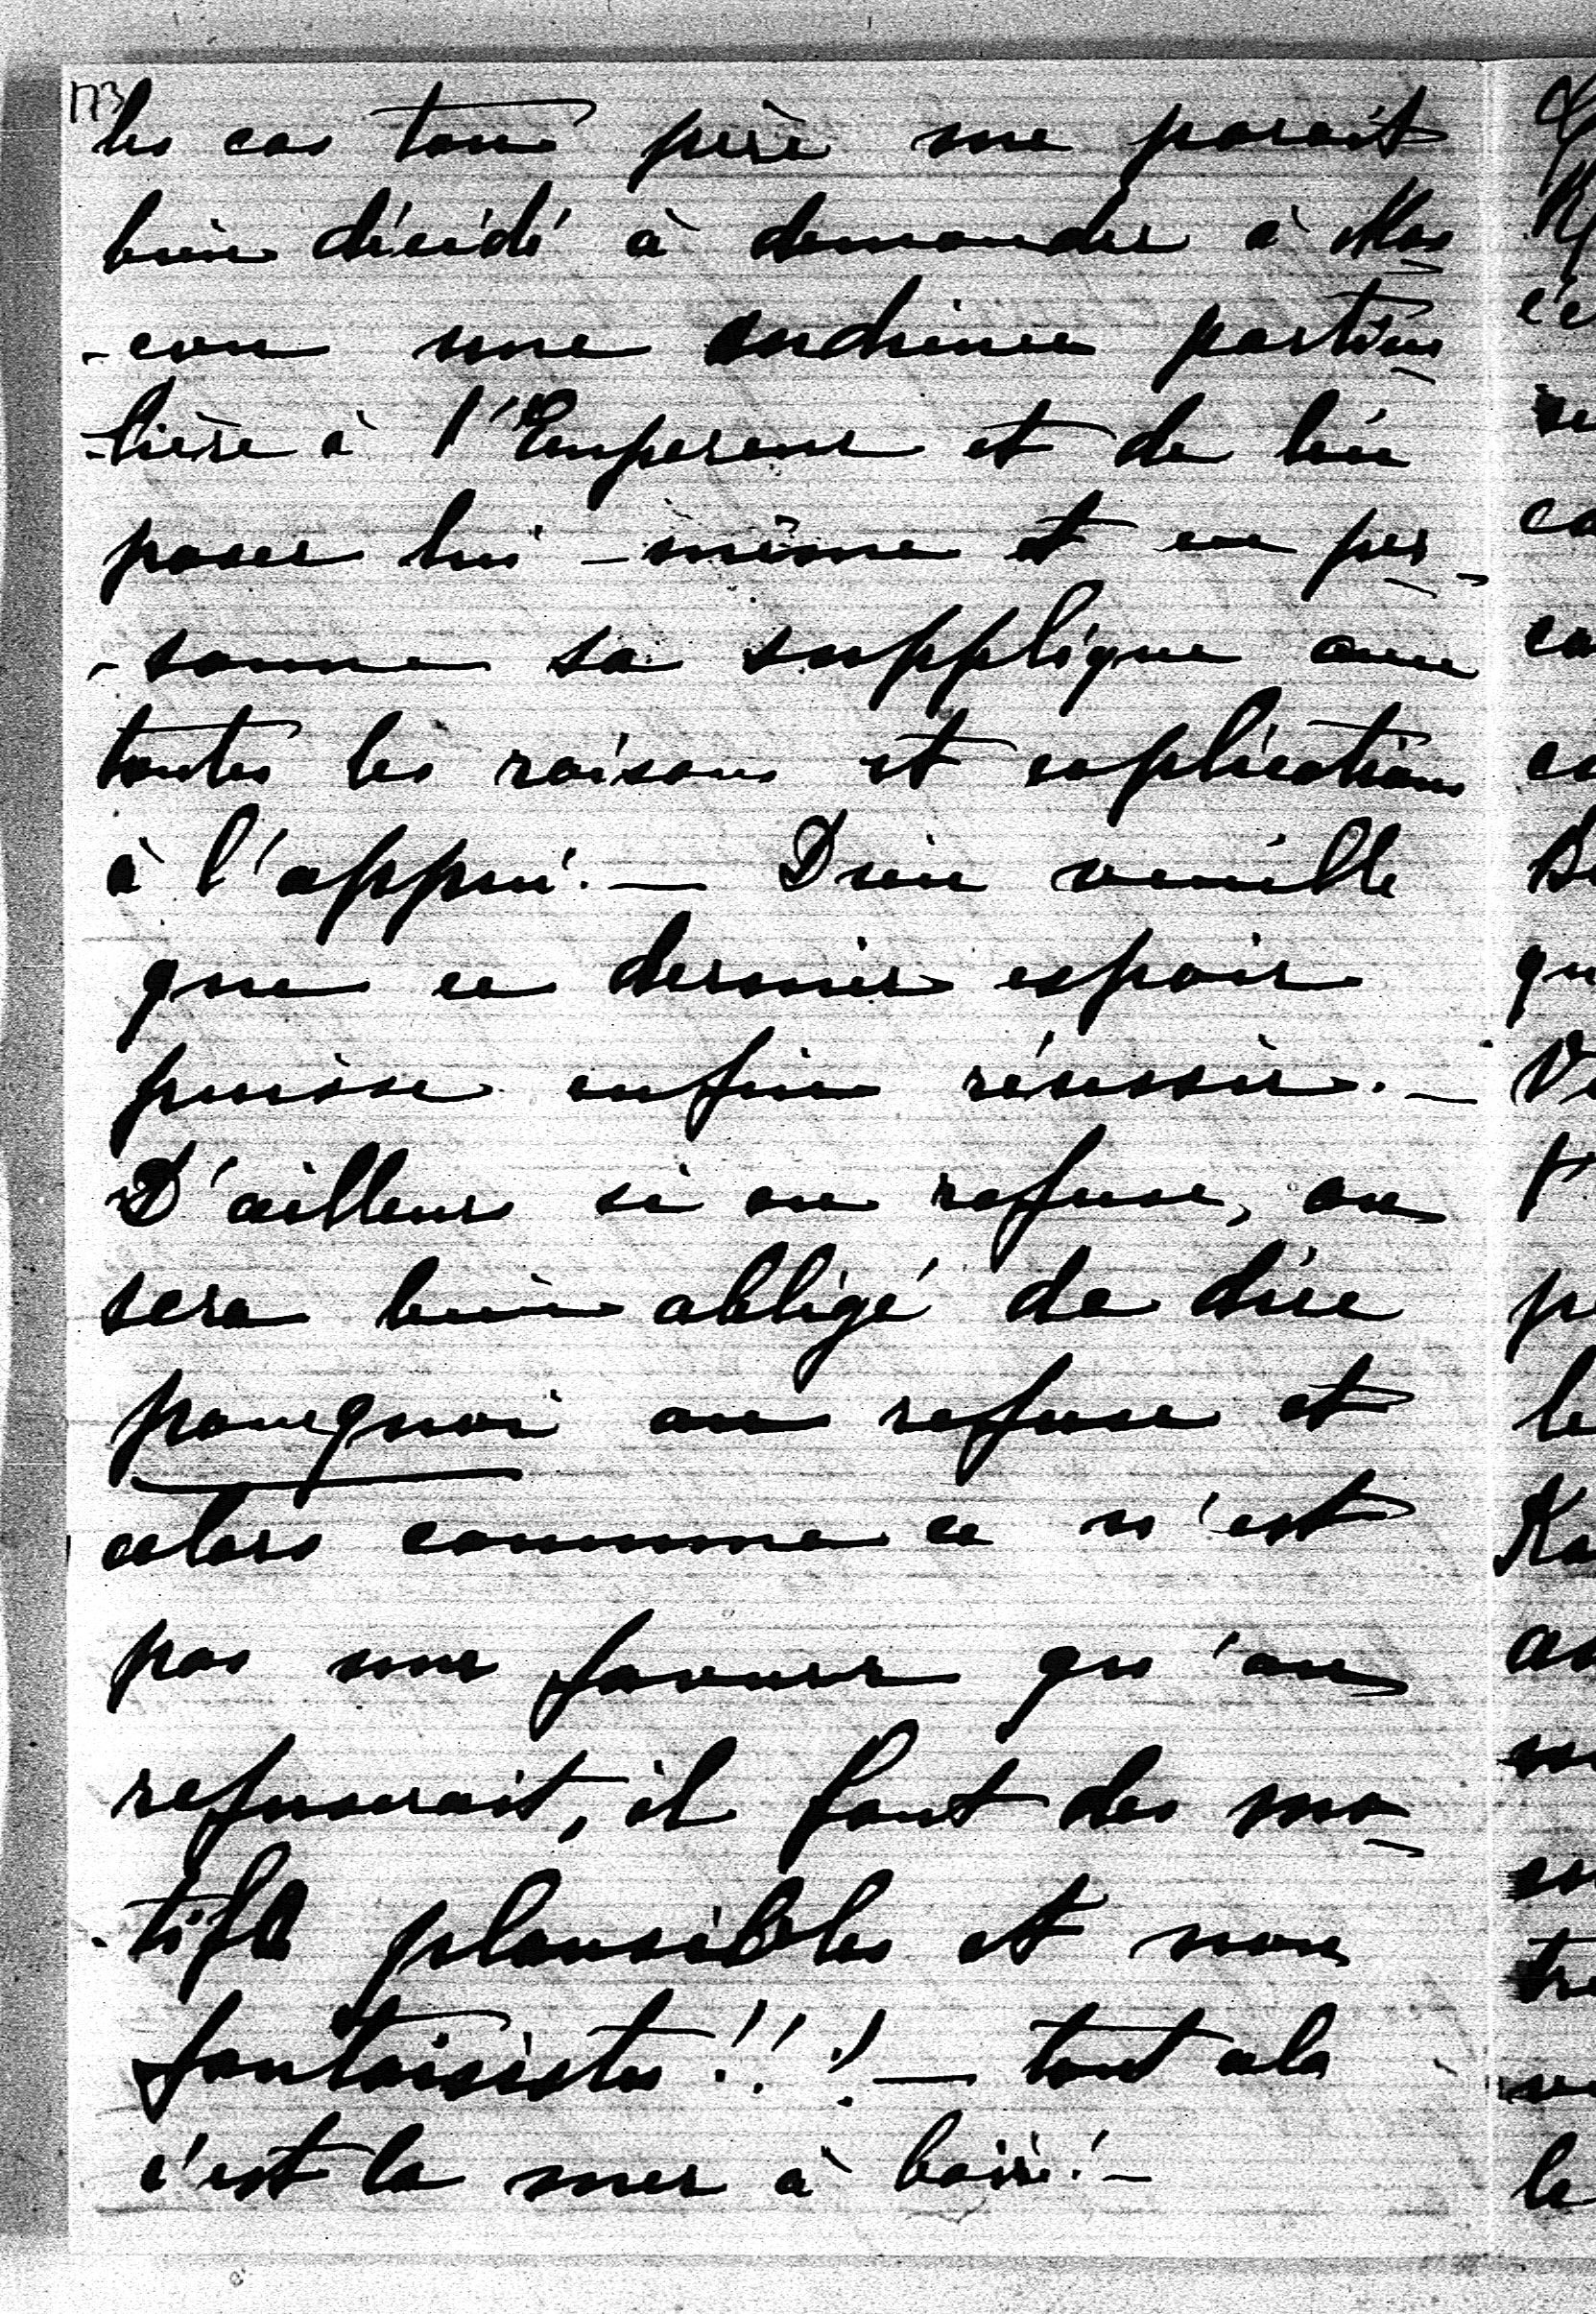 173
les cas ton père me parait
bien décidé à demander à Mos
-cou une audience particu
-lière à l'Empereur et de lui
poser lui-même et en per-
-sonne sa supplique avec
toutes les raisons et explications
à l'appui. — Dieu veuille
que ce dernier espoir
puisse enfin réussir. —
D'ailleurs si on refuse, on
sera bien obligé de dire
pourquoi on refuse et
alors comme ce n'est
pas une faveur qu'on
refuserait, il faut des mo
-tifs plausibles et non
fantaisistes!!! — tout cela
c'est la mer à boire! —